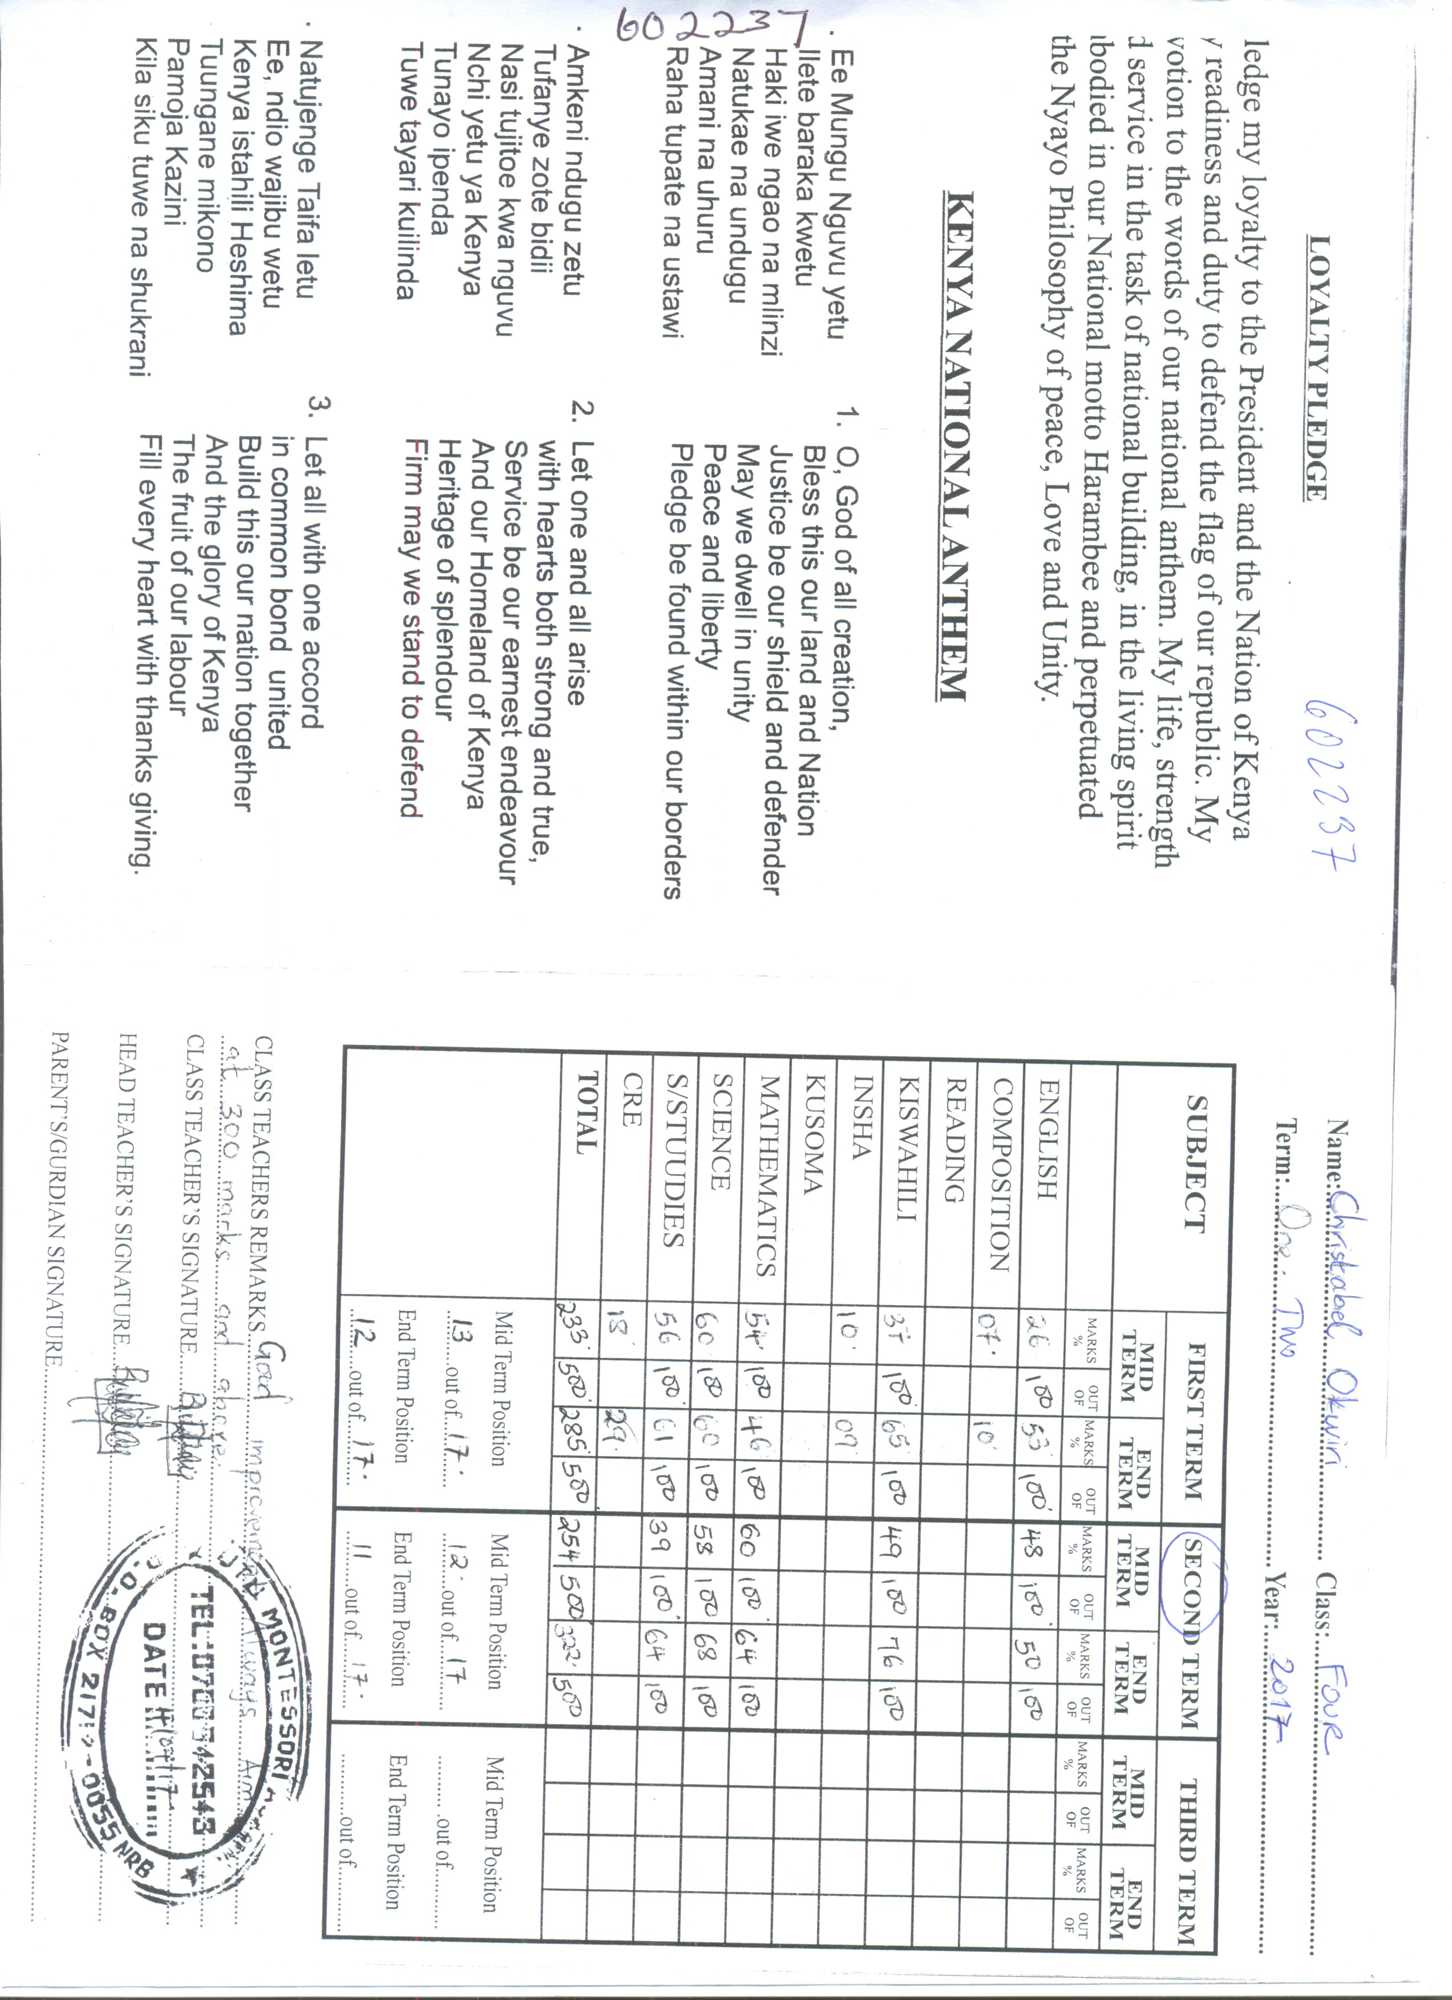 602237
LOYALTY PLEDGE
602237
ledge my loyalty to the President and the Nation of Kenya
y readiness and duty to defend the flag of our republic. My
votion to the words of our national anthem. My life, strength
d service in the task of national building, in the living spirit
ibodied in our National motto Harambee and perpetuated
the Nyayo Philosophy of peace, Love and Unity.
KENYA NATIONAL ANTHEM
. Ee Mungu Nguvu yetu
Ilete baraka kwetu
Haki iwe ngao na mlinzi
Natukae na undugu
Amani na uhuru
Raha tupate na ustawi
1. O, God of all creation,
Bless this our land and Nation
Justice be our shield and defender
May we dwell in unity
Peace and liberty
Pledge be found within our borders
. Amkeni ndugu zetu
Tufanye zote bidii
Nasi tujitoe kwa nguvu
Nchi yetu ya Kenya
Tunayo ipenda
Tuwe tayari kuilinda
2. Let one and all arise
with hearts both strong and true,
Service be our earnest endeavour
And our Homeland of Kenya
Heritage of splendour
Firm may we stand to defend
. Natujenge Taifa letu
Ee, ndio wajibu wetu
Kenya istahili Heshima
Tuungane mikono
Pamoja Kazini
Kila siku tuwe na shukrani
3. Let all with one accord
in common bond united
Build this our nation together
And the glory of Kenya
The fruit of our labour
Fill every heart with thanks giving.
Name: Christabel Okwiri Class: FOUR
Term: One. Two Year: 2017
SUBJECT FIRST TERM SECOND TERM THIRD TERM
MID TERM END TERM MID TERM END TERM MID TERM END TERM
MARKS % OUT OF MARKS % OUT OF MARKS % OUT OF MARKS % OUT OF MARKS % OUT OF MARKS % OUT OF
ENGLISH 26 100 53 100 48 100 50 100
COMPOSITION 07 10
READING
KISWAHILI 37 100 65 100 49 100 76 100
INSHA 10 09
KUSOMA
MATHEMATICS 54 100 46 100 60 100 64 100
SCIENCE 60 100 60 100 58 100 68 100
S/STUUDIES 56 100 61 100 39 100 64 100
CRE 18 29
TOTAL 233 500 285 500 254 500 322 500
Mid Term Position Mid Term Position Mid Term Position
13 out of 17. 12 out of 17 out of
End Term Position End Term Position End Term Position
12 out of 17. 11 out of 17. out of
CLASS TEACHERS REMARKS Good improvement Always Aim
at 300 marks and above.
CLASS TEACHER'S SIGNATURE
HEAD TEACHER'S SIGNATURE
PARENT'S/GURDIAN SIGNATURE
MONTESSORI
TEL:0700342543
DATE
NRB